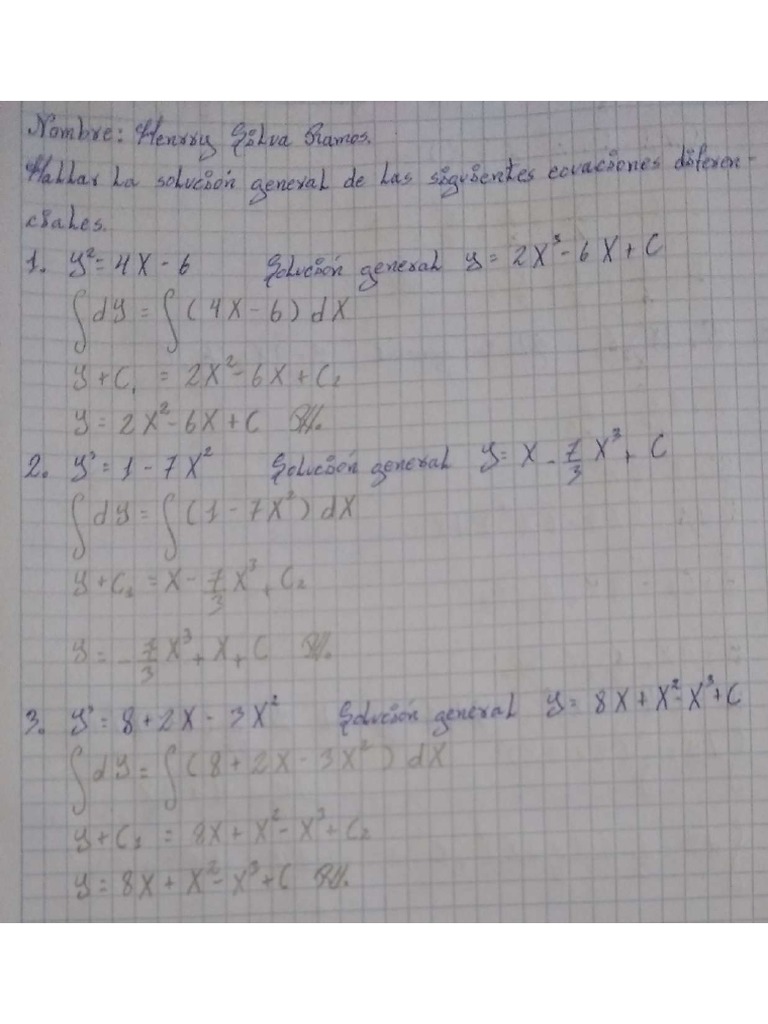 Nombre: Henrry Silva Ramos.
Hallar la solución general de las siguientes ecuaciones diferen-
ciales.
1. y² = 4x - 6 Solución general y = 2x³ - 6x + C
∫dy = ∫(4x - 6) dx
y + C₁ = 2x² - 6x + C₂
y = 2x² - 6x + C
2. y' = 1 - 7x² Solución general y = x - 7/3 x³ + C
∫dy = ∫(1 - 7x²) dx
y + C₁ = x - 7/3 x³ + C₂
y = -7/3 x³ + x + C
3. y' = 8 + 2x - 3x² Solución general y = 8x + x² - x³ + C
∫dy = ∫(8 + 2x - 3x²) dx
y + C₁ = 8x + x² - x³ + C₂
y = 8x + x² - x³ + C